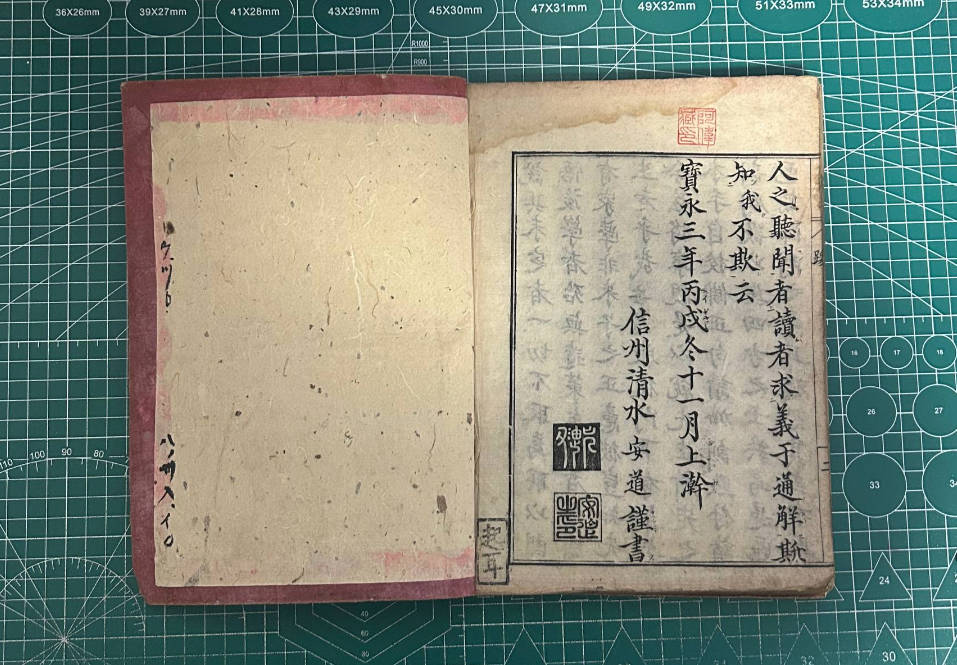 人之聽聞者讀者求義于通解斯
知我不欺云
寶永三年丙戌冬十一月上澣
信州清水安道謹書
36X26mm
39X27mm
41X28mm
43X29mm
45X30mm
47X31mm
49X32mm
51X33mm
53X34mm
R1000
R900
16
17
18
26
27
33
34
24
30
110
100
90
80
40
60
80